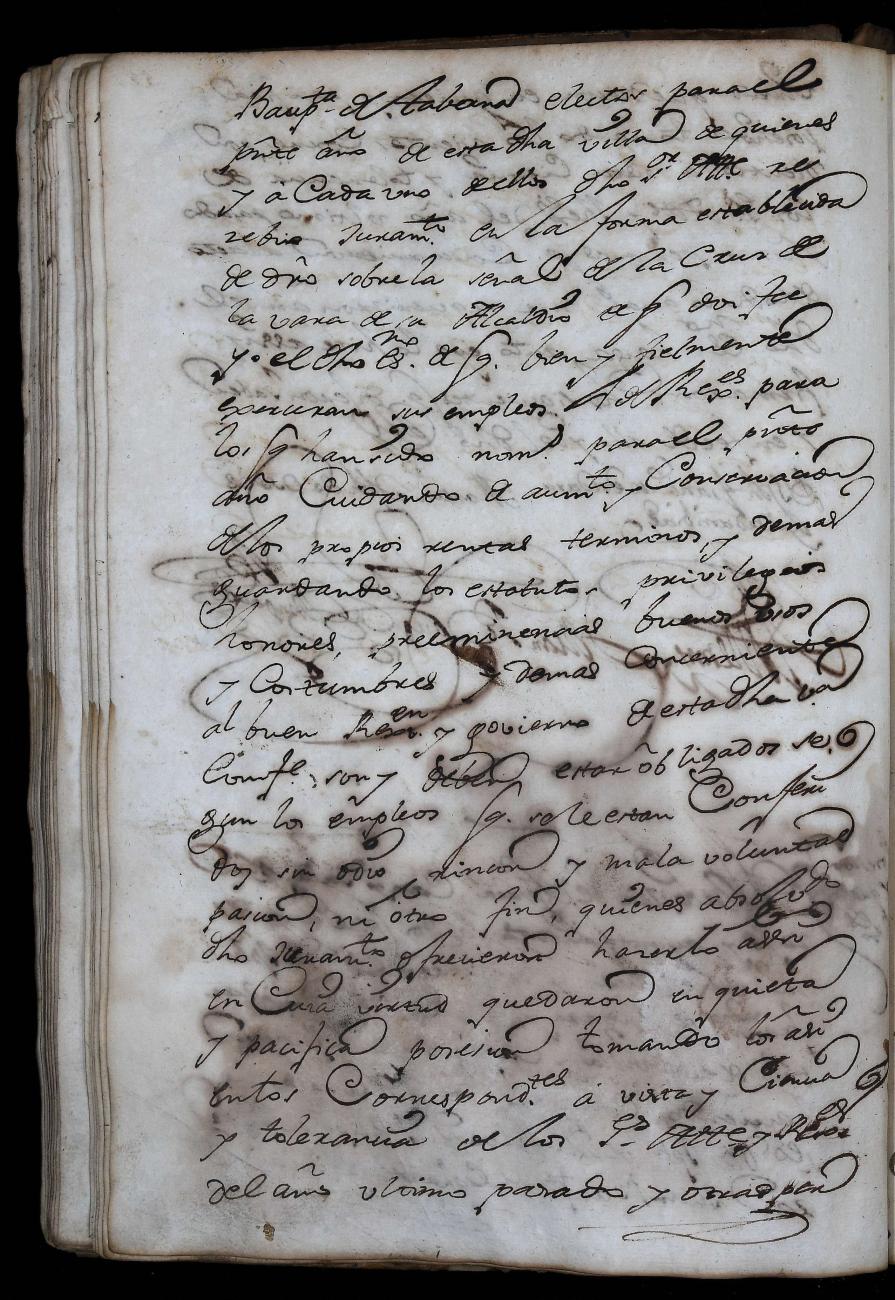 Baupᵗᵃ de Taborna electos para el
prᵗᵉ año de esta dha villa de quienes
y a Cada uno dellos dho Sʳ Alle re
zebio Juramᵗᵒ en la forma establecida
de dro sobre la señal de la Cruz de
la vara de su Alcaldia de q doi fee
yo el dho esⁿᵒ de q. bien y fielmente
exerceran sus empleos de Rexᵉˢ para
los q han sido nomᵈ para el prᵗᵉ
año Cuidando de aumᵗᵒ y Conservacion
de los propios rentas terminos y demas
guardando los estatutos privilegios
honores, preeminencias buenos vsos
y Costumbres y demas Concerniente
al buen Rexᵉⁿ y govierno de esta dha vª
Comfᵉ son y deben estar obligados se
gun los empleos q. se le estan Conferi
dos sin odio rincon y mala voluntad
pasion, ni otro fin, quienes absolvᵈᵒ
dho Juramᵗᵒ ofrecieron hazerlo assi
en Cuia virtud quedaron en quieta
y pacifica posesion tomando los asi
entos Correspondᵗᵉˢ a vista y Ciencia
y tolerancia de los Sʳᵉˢ Alle y Rexᵉˢ
del año vltimo pasado y otras per